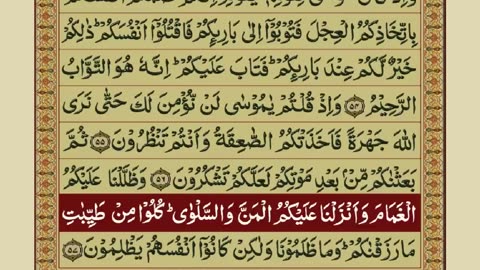 بِاتِّخَاذِكُمُ الْعِجْلَ فَتُوْبُوْۤا اِلٰى بَارِىِٕكُمْ فَاقْتُلُوْۤا اَنْفُسَكُمْ ؕ ذٰلِكُمْ
خَيْرٌ لَّكُمْ عِنْدَ بَارِىِٕكُمْ ؕ فَتَابَ عَلَيْكُمْ ؕ اِنَّهٗ هُوَ التَّوَّابُ
الرَّحِيْمُ ﴿۵۴﴾ وَاِذْ قُلْتُمْ يٰمُوْسٰى لَنْ نُّؤْمِنَ لَكَ حَتّٰى نَرَى
اللّٰهَ جَهْرَةً فَاَخَذَتْكُمُ الصّٰعِقَةُ وَاَنْتُمْ تَنْظُرُوْنَ ﴿۵۵﴾ ثُمَّ
بَعَثْنٰكُمْ مِّنْۢ بَعْدِ مَوْتِكُمْ لَعَلَّكُمْ تَشْكُرُوْنَ ﴿۵۶﴾ وَظَلَّلْنَا عَلَيْكُمُ
الْغَمَامَ وَاَنْزَلْنَا عَلَيْكُمُ الْمَنَّ وَالسَّلْوٰى ؕ كُلُوْا مِنْ طَيِّبٰتِ
مَا رَزَقْنٰكُمْ ؕ وَمَا ظَلَمُوْنَا وَلٰكِنْ كَانُوْۤا اَنْفُسَهُمْ يَظْلِمُوْنَ ﴿۵۷﴾